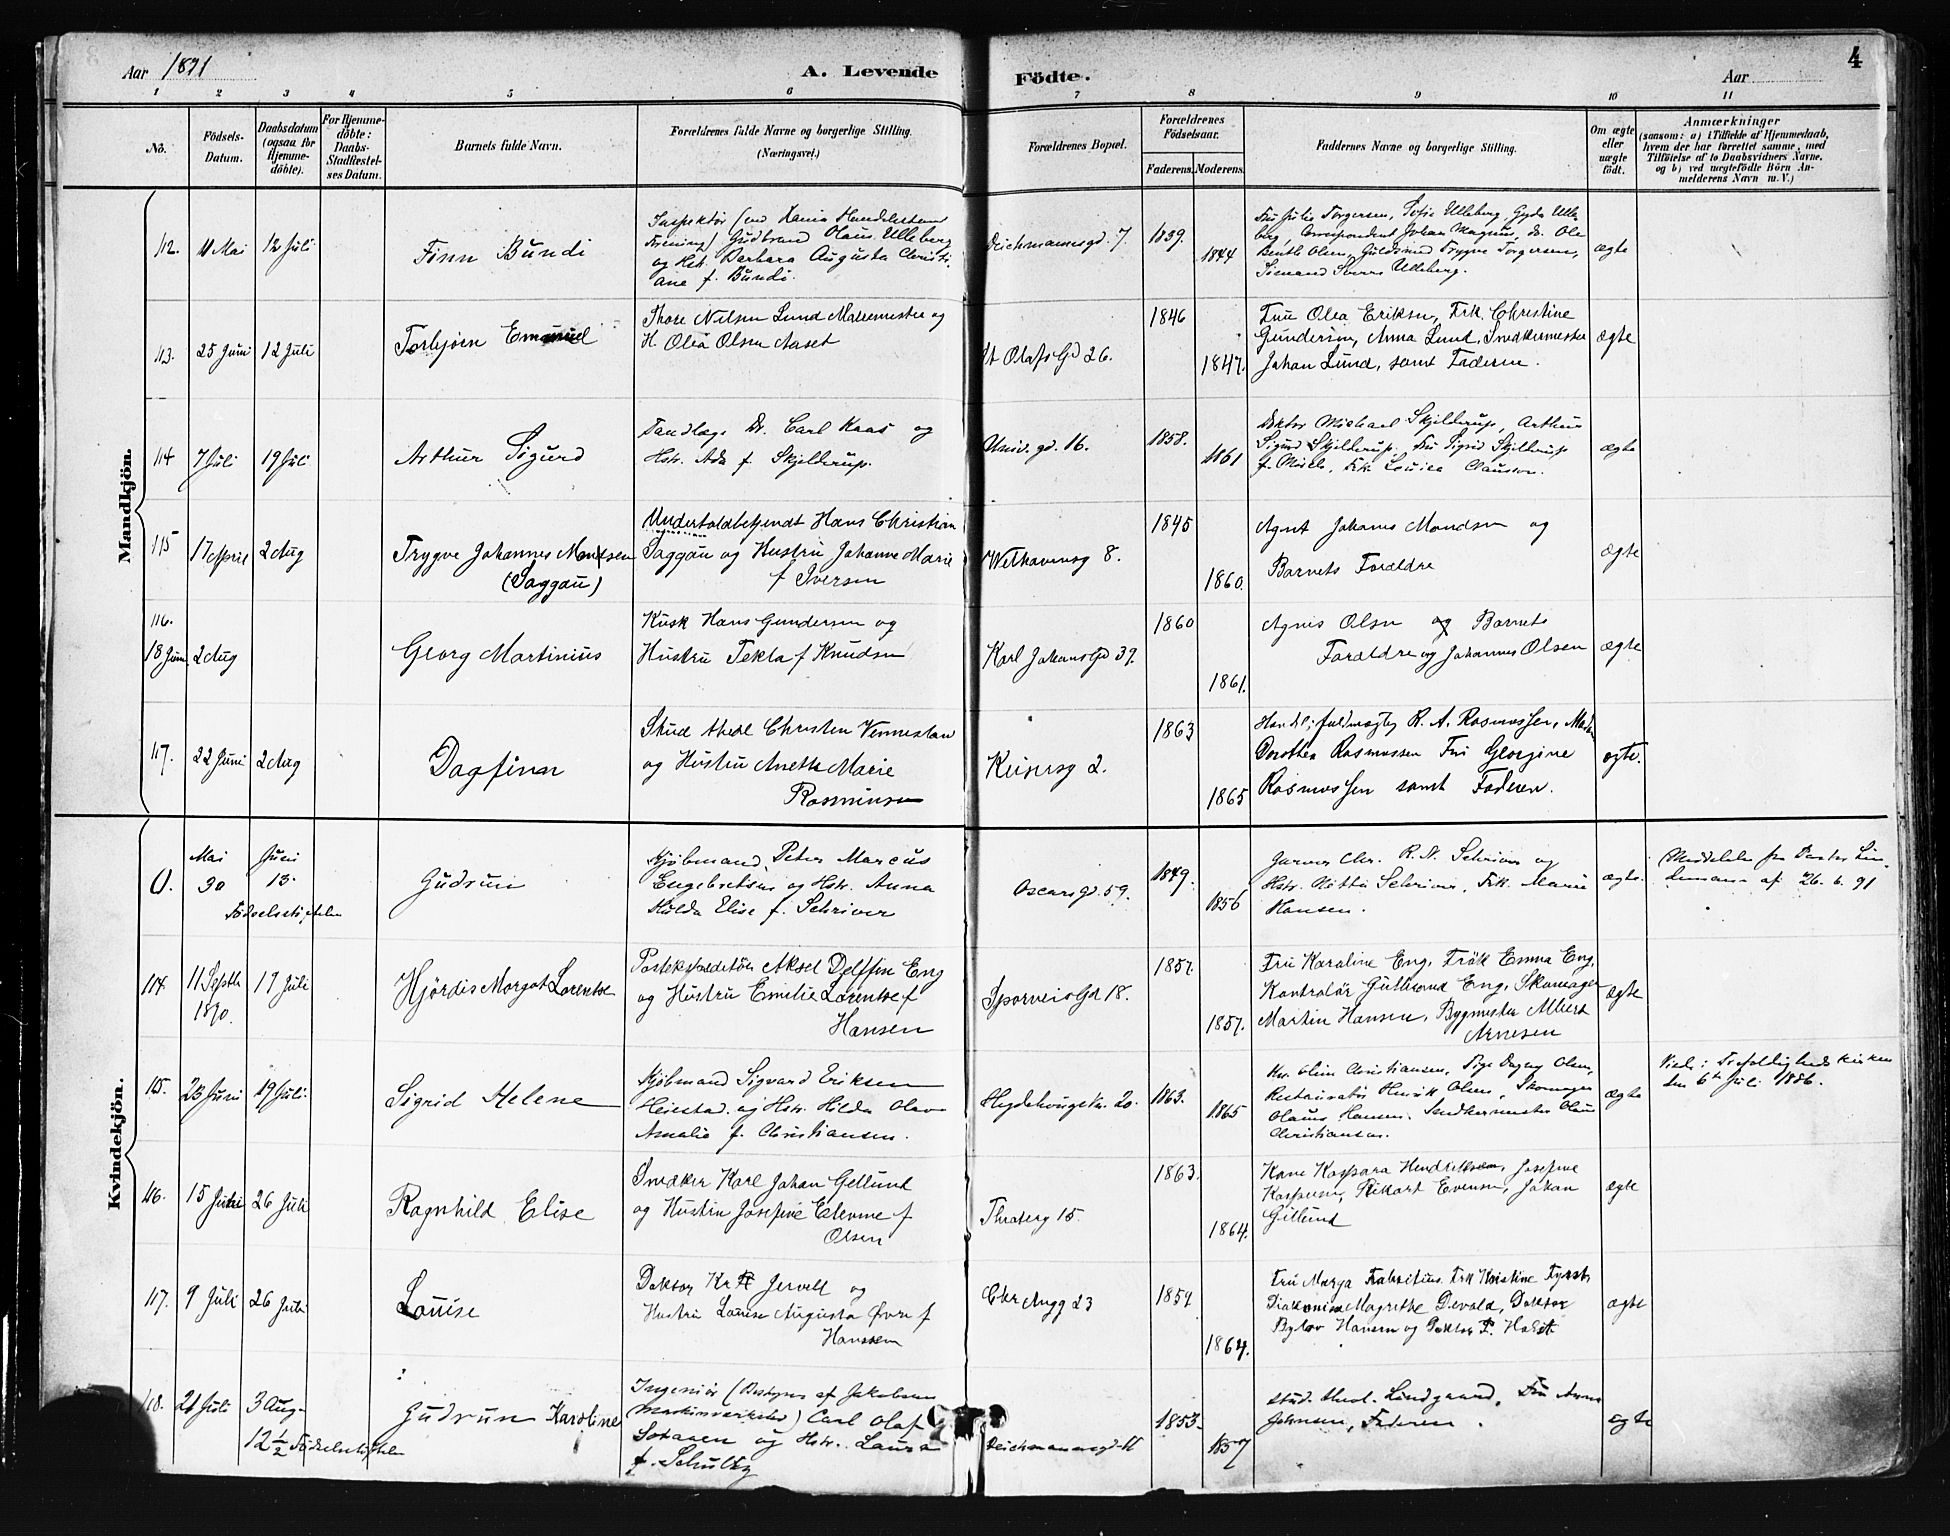 Aar 1891
A. Levende Födte.
Aar
4
1 2 3 4 5 6 7 8 9 10 11
No.
Födsels-Datum.
Daabsdatum (ogsaa for Hjemme-döbte).
For Hjemme-döbte: Daabs-Stadfæstel-ses Datum.
Barnets fulde Navn.
Forældrenes fulde Navne og borgerlige Stilling.
(Næringsvei.)
Forældrenes Bopæl.
Forældrenes Födselsaar.
Faderens. Moderens.
Faddernes Navne og borgerlige Stilling.
Om ægte eller uægte födt.
Anmærkninger
(saasom: a) i Tilfælde af Hjemmedaab,
hvem der har forrettet samme, med
Tilföielse af to Daabsvidners Navne,
og b) ved uægtefödte Börn An-
melderens Navn m. V.)
Mandkjön.
112. 11 Mai 12 Juli Finn Bundi
Gudbrand Olaus Ulleberg
og Hst. Barbara Augusta Christi-
ane f. Bundi.
Deichmannsgd. 7. 1839. 1844
Fru Julie Torgersen, Sofie Ulleberg, Gyda Ulle
berg, Correspondent Johan Magnus, Ole
Olsen, Guldsmed Trygve Torgersen,
Sverre Ulleberg.
ægte
113. 25 Juni 12 Juli Torbjørn Emanuel
Thore Nilsen Lund Malermester og
H. Olea Olsen Aaset
St Olafs Gd 26. 1846 1847.
Fru Olea Eriksen, Frk. Christine
Gundersen, Anna Lund, Snedkermester
Johan Lund, samt Faderen.
ægte
114 7 Juli 19 Juli Arthur Sigurd
Tandlæge Dr. Carl Kaas og
Hstr. Ada f. Skjelderup.
Univ. gd. 16. 1858. 1861
Doktor Michael Skjelderup, Arthur
Sigurd Skjelderup, Fru Sigrid Skjelderup
Frk Louisa Clauson.
ægte
115 17 April 2 Aug Trygve Johannes Mandsen
(Saggau)
Hans Christian
Saggau og Hustru Johanne Marie
f Iversen
Welhavensg 8. 1845 1860.
Agnt Johanes Mandsen og
Barnets Forældre
ægte
116.
18 Juni 2 Aug Georg Martinius
Kusk Hans Gundersen og
Hustru Tekla f Knudsen
Karl Johans Gd 39. 1860 1861.
Agnes Olsen og Barnets
Forældre og Johannes Olsen
ægte
117. 22 Juni 2 Aug Dagfinn
Stud theol Christen Vennesland
og Hustru Anette Marie
Rasmussen
Keisersg 2. 1863 1865
Handl. fuldmægtig R. A. Rasmussen,
Dorothea Rasmussen Fru Georgine
Rasmussen samt Faderen.
ægte.
Kvindekjön.
0. Mai 30 Juni 13.
Födselsstiftelsen
Gudrun
Kjøbmand Peter Marcus
Engebretsen og Hstr. Anna
Hulda Elise f. Schriver
Oscarsgd. 59. 1849. 1856
Garver Chr. R. N. Schriver og
Hstr. Schriver, Frk. Marie
Hansen.
ægte.
Meddelelse fra Pastor Lin-
demann af 26. 6. 91
114. 11 Septbr 1890. 17 Juli Hjördis Margot Lorentze
Postekspeditör Aksel Delffin Eng
og Hustru Emilie Lorentze f
Hansen
Sporveis Gd 18. 1857. 1857.
Fru Karaline Eng, Frök Emma Eng,
Kontralör Gulbrand Eng, Skomager
Martin Hansen, Bygmester Albert
Arnesen
ægte
115. 23 Juni 19 Juli. Sigrid Helene
Kjøbmand Sigvard Eriksen
Heiestad og Hstr. Hilda Olava
Amalie f. Christiansen.
Hegdehaugsv. 20. 1863. 1865
Christiansen, Pige Dagny Olsen,
Restauratör Henrik Olsen, Skomager
Olaus Hansen, Snedkermester Olaus
Christiansen.
ægte
Viede i Trefoldighedskirken
den 6te Juli 1886.
116. 15 Juni 26 Juli Ragnhild Elise
Snedker Karl Johan Gellund
og Hustru Josefine f
Olsen
Theaterg 15. 1863. 1864.
Kone Kaspara Hendriksen, Josefine
Kaspersen, Rikart Evensen, Johan
Gellund
ægte
117. 9 Juli 26 Juli Louise
Doktor Kr Jervell og
Hustru Louise Augusta f
Hanssen
Chr Augg 23 1859 1864.
Fru Marja Fabritius Frk Kristine
Magrethe Devold, Doktor
Hansen og Doktor P. Holst
ægte
118. 21 Juli 3 Aug.
12 ½ Födselsstiftelsen
Gudrun Karoline
Ingeniör (Bestyrer af Jakobsens
Carl Olaf
og Hstr. Laura
f. Schultz
Deichmannsgd. 11 1853. 1857
Stud. theol. Lindgaard, Fru Anna
Johnsen, Faderen.
ægte